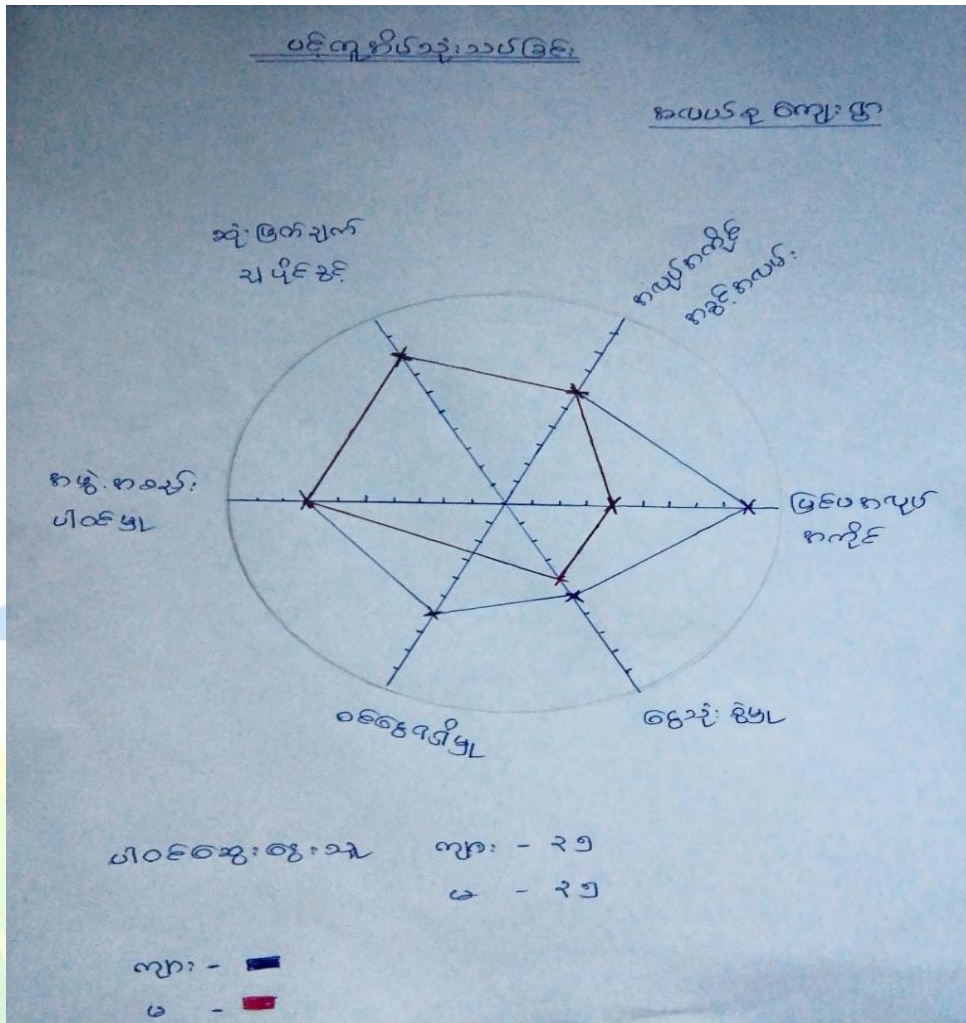 ပင့်ကူအိမ်သုံးသပ်ခြင်း
အလယ်စု ကျေးရွာ
ဆုံးဖြတ်ချက်
ချပိုင်ခွင့်
အလုပ်အကိုင်
အခွင့်အလမ်း
အဖွဲ့အစည်း
ပါဝင်မှု
ပြင်ပအလုပ်
အကိုင်
ဝင်ငွေရရှိမှု
ငွေသုံးစွဲမှု
ပါဝင်ဆွေးနွေးသူ ကျား - ၁၅
မ - ၁၅
ကျား -
မ -